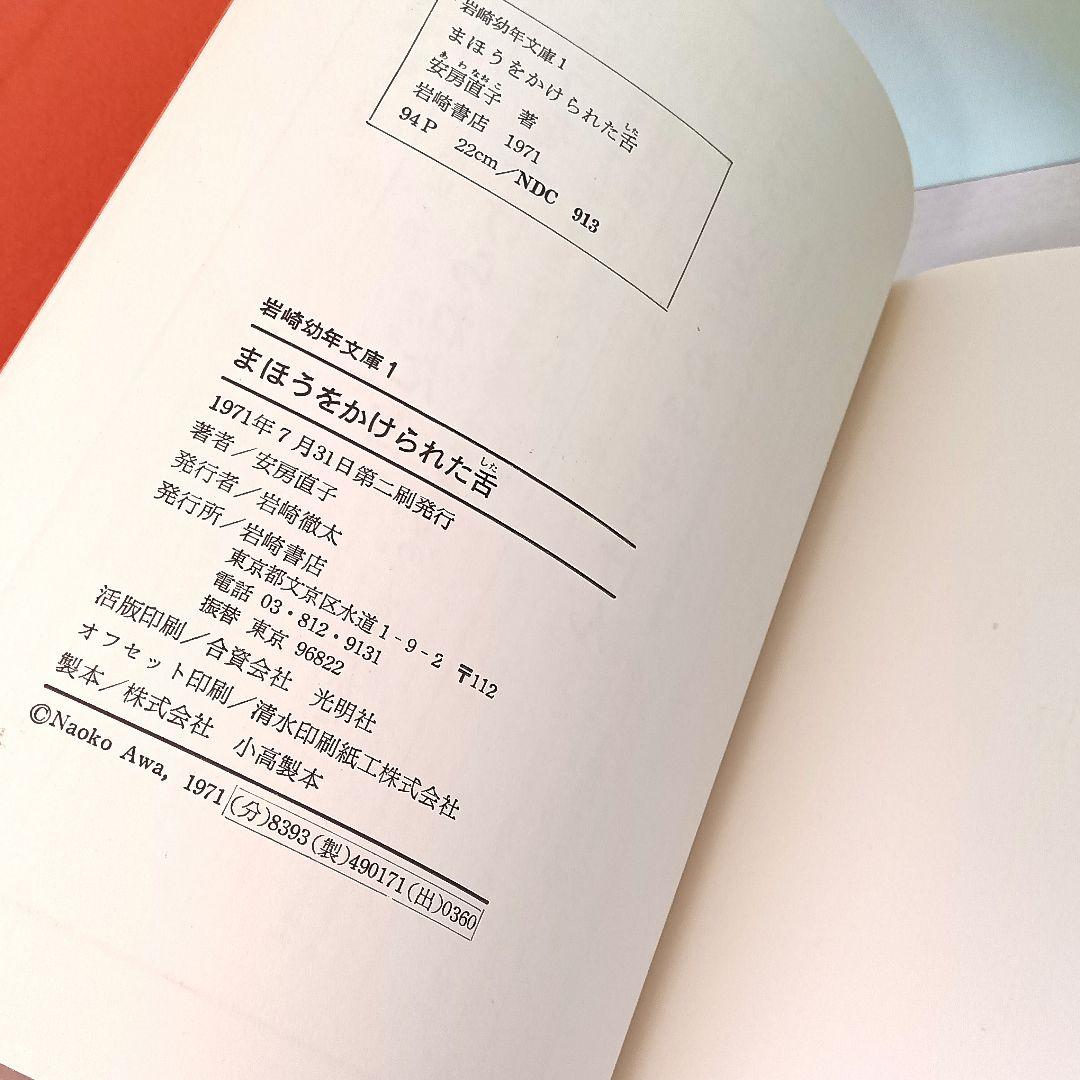 岩崎幼年文庫1
まほうをかけられた舌
した
あわなおこ
安房直子 著
岩崎書店 1971
94P 22cm/NDC 913
岩崎幼年文庫1
まほうをかけられた舌
した
1971年7月31日第二刷発行
著者/安房直子
発行者/岩崎徹太
発行所/岩崎書店
東京都文京区水道1-9-2 〒112
電話 03・812・9131
振替 東京 96822
活版印刷/合資会社 光明社
オフセット印刷/清水印刷紙工株式会社
製本/株式会社 小高製本
©Naoko Awa, 1971 (分)8393(製)490171(出)0360